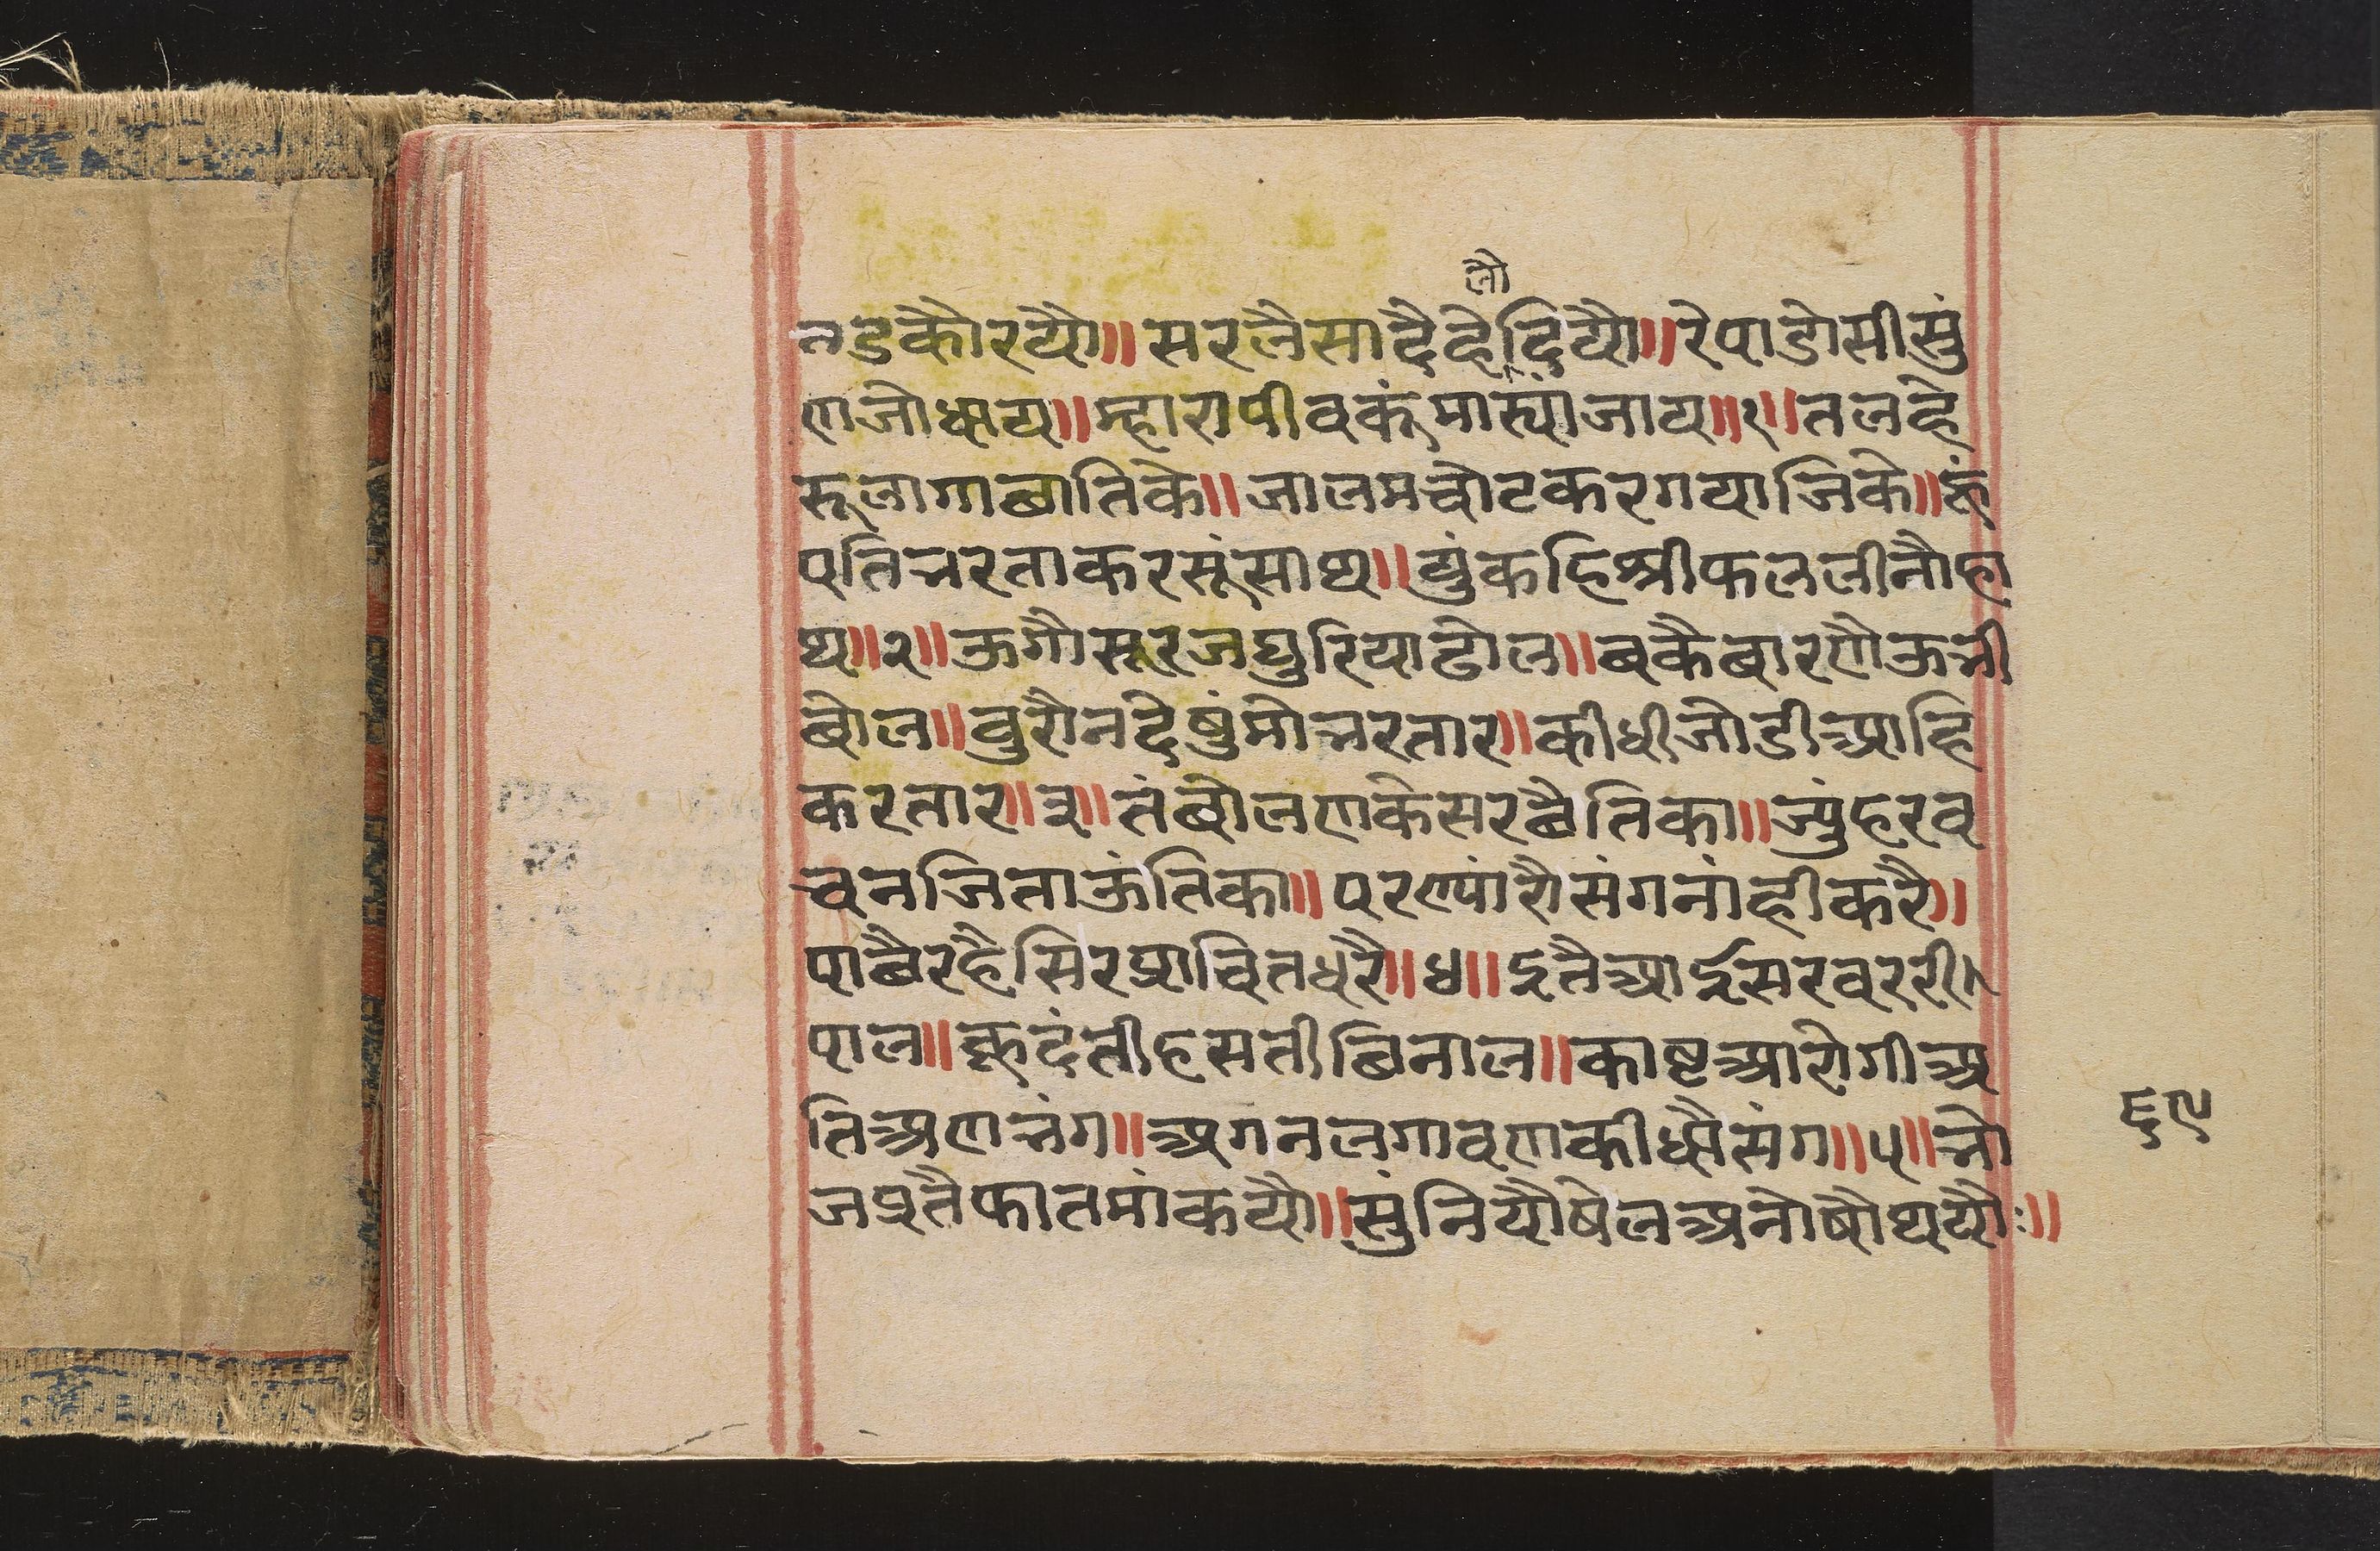 लौ
नडकौरयौ॥सरलैसादैहेदियौ॥रेपाडोसीसुं
णजोधाय॥म्हारापीवकुंमास्यांजाय॥१॥तलहे
रूलागाबातिके॥जालमचोटकरगयाजिके॥हूं
पतिभरताकरसूंसाथ॥युंकहिश्रीफललीनौहा
थ॥२॥ऊगौसूरजघुरियाढोल॥बकैबारणैऊभी
बोल॥बुरौनदेषुंमोभरतार॥कीधीजोडीआहि
करतार॥३॥तंबोलणकेसरबैतिका॥ज्युंहरव
चनजिताऊंतिका॥परण्यांरौसंगनांहीकरै॥
पाबैरहैसिरप्राचितधरै॥४॥इतैआईसरवररी
पाल॥कूदंतीहसतीबिनाल॥काष्टआरोगीअ
तिअणभंग॥अगनलगावणकीधौसंग॥५॥भो
जइतैफातमांकयौ॥सुंनियौषेलअनोषौथयौः॥
६९